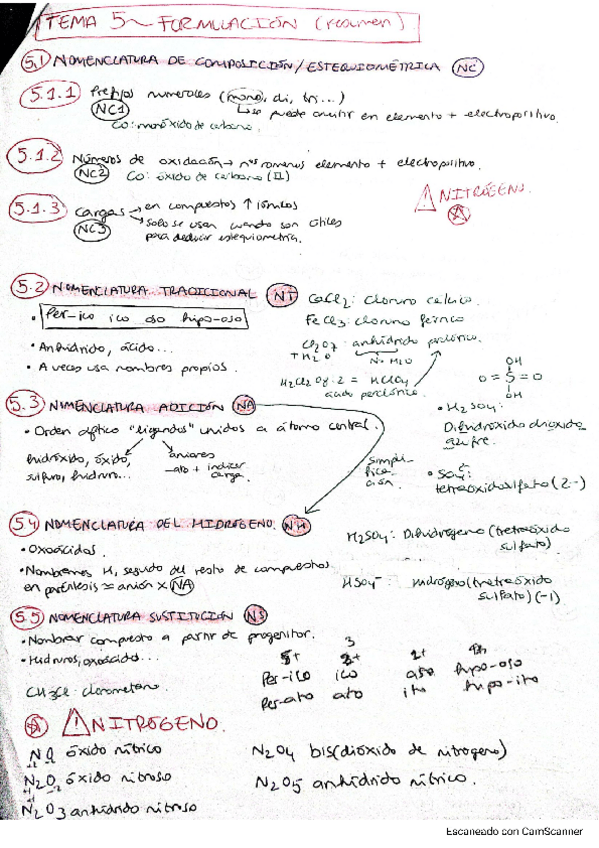 TEMA 5 ~ FORMULACIÓN (resumen)
5.1 NOMENCLATURA DE COMPOSICIÓN/ESTEQUIOMÉTRICA NC
5.1.1 Prefijos numerales (mono, di, tri...)
NC1 ↳ se puede omitir en elemento + electropositivo.
CO: monóxido de carbono.
5.1.2 Números de oxidación → nºs romanos elemento + electropositivo.
NC2 CO: óxido de carbono (II)
⚠ NITRÓGENO.
5.1.3 Cargas → en compuestos ↑ iónicos
NC3 → solo se usan cuando son útiles
para deducir estequiometría.
5.2 NOMENCLATURA TRADICIONAL NT
CaCl2: cloruro cálcico.
• Per-ico ico oso hipo-oso
FeCl3: cloruro férrico
• Anhídrido, ácido...
Cl2O7: anhídrido perclórico.
+ H2O
• A veces usa nombres propios.
H2Cl2O8:2 = HClO4
ácido perclórico.
OH
O=S=O
OH
5.3 NOMENCLATURA ADICIÓN NA
• Orden alfético "ligandos" unidos a átomo central.
• H2SO4:
Dihidroxido dioxido
azufre.
hidróxido, óxido,
sulfuro, hidruro...
aniones
-ato + indicar
carga.
simpli-
fica-
ción.
• SO4 2-:
tetraoxidosulfato(2-)
5.4 NOMENCLATURA DEL HIDRÓGENO NH
• Oxoácidos.
H2SO4: Dihidrogeno(tetraóxido
sulfato)
• Nombramos H, seguido del resto de compuestos
en paréntesis = anión x NA
HSO4-: hidrogeno(tetraóxido
sulfato)(-1)
5.5 NOMENCLATURA SUSTITUCIÓN NS
• Nombrar compuesto a partir de progenitor.
• Hidruros, oxoácidos...
Per-ico ico oso hipo-oso
Per-ato ato ito hipo-ito
CH3Cl: clorometano.
⚠ NITRÓGENO.
óxido nítrico
N2O óxido nitroso
N2O3 anhídrido nitroso
N2O4 bis(dióxido de nitrógeno)
N2O5 anhídrido nítrico.
Escaneado con CamScanner